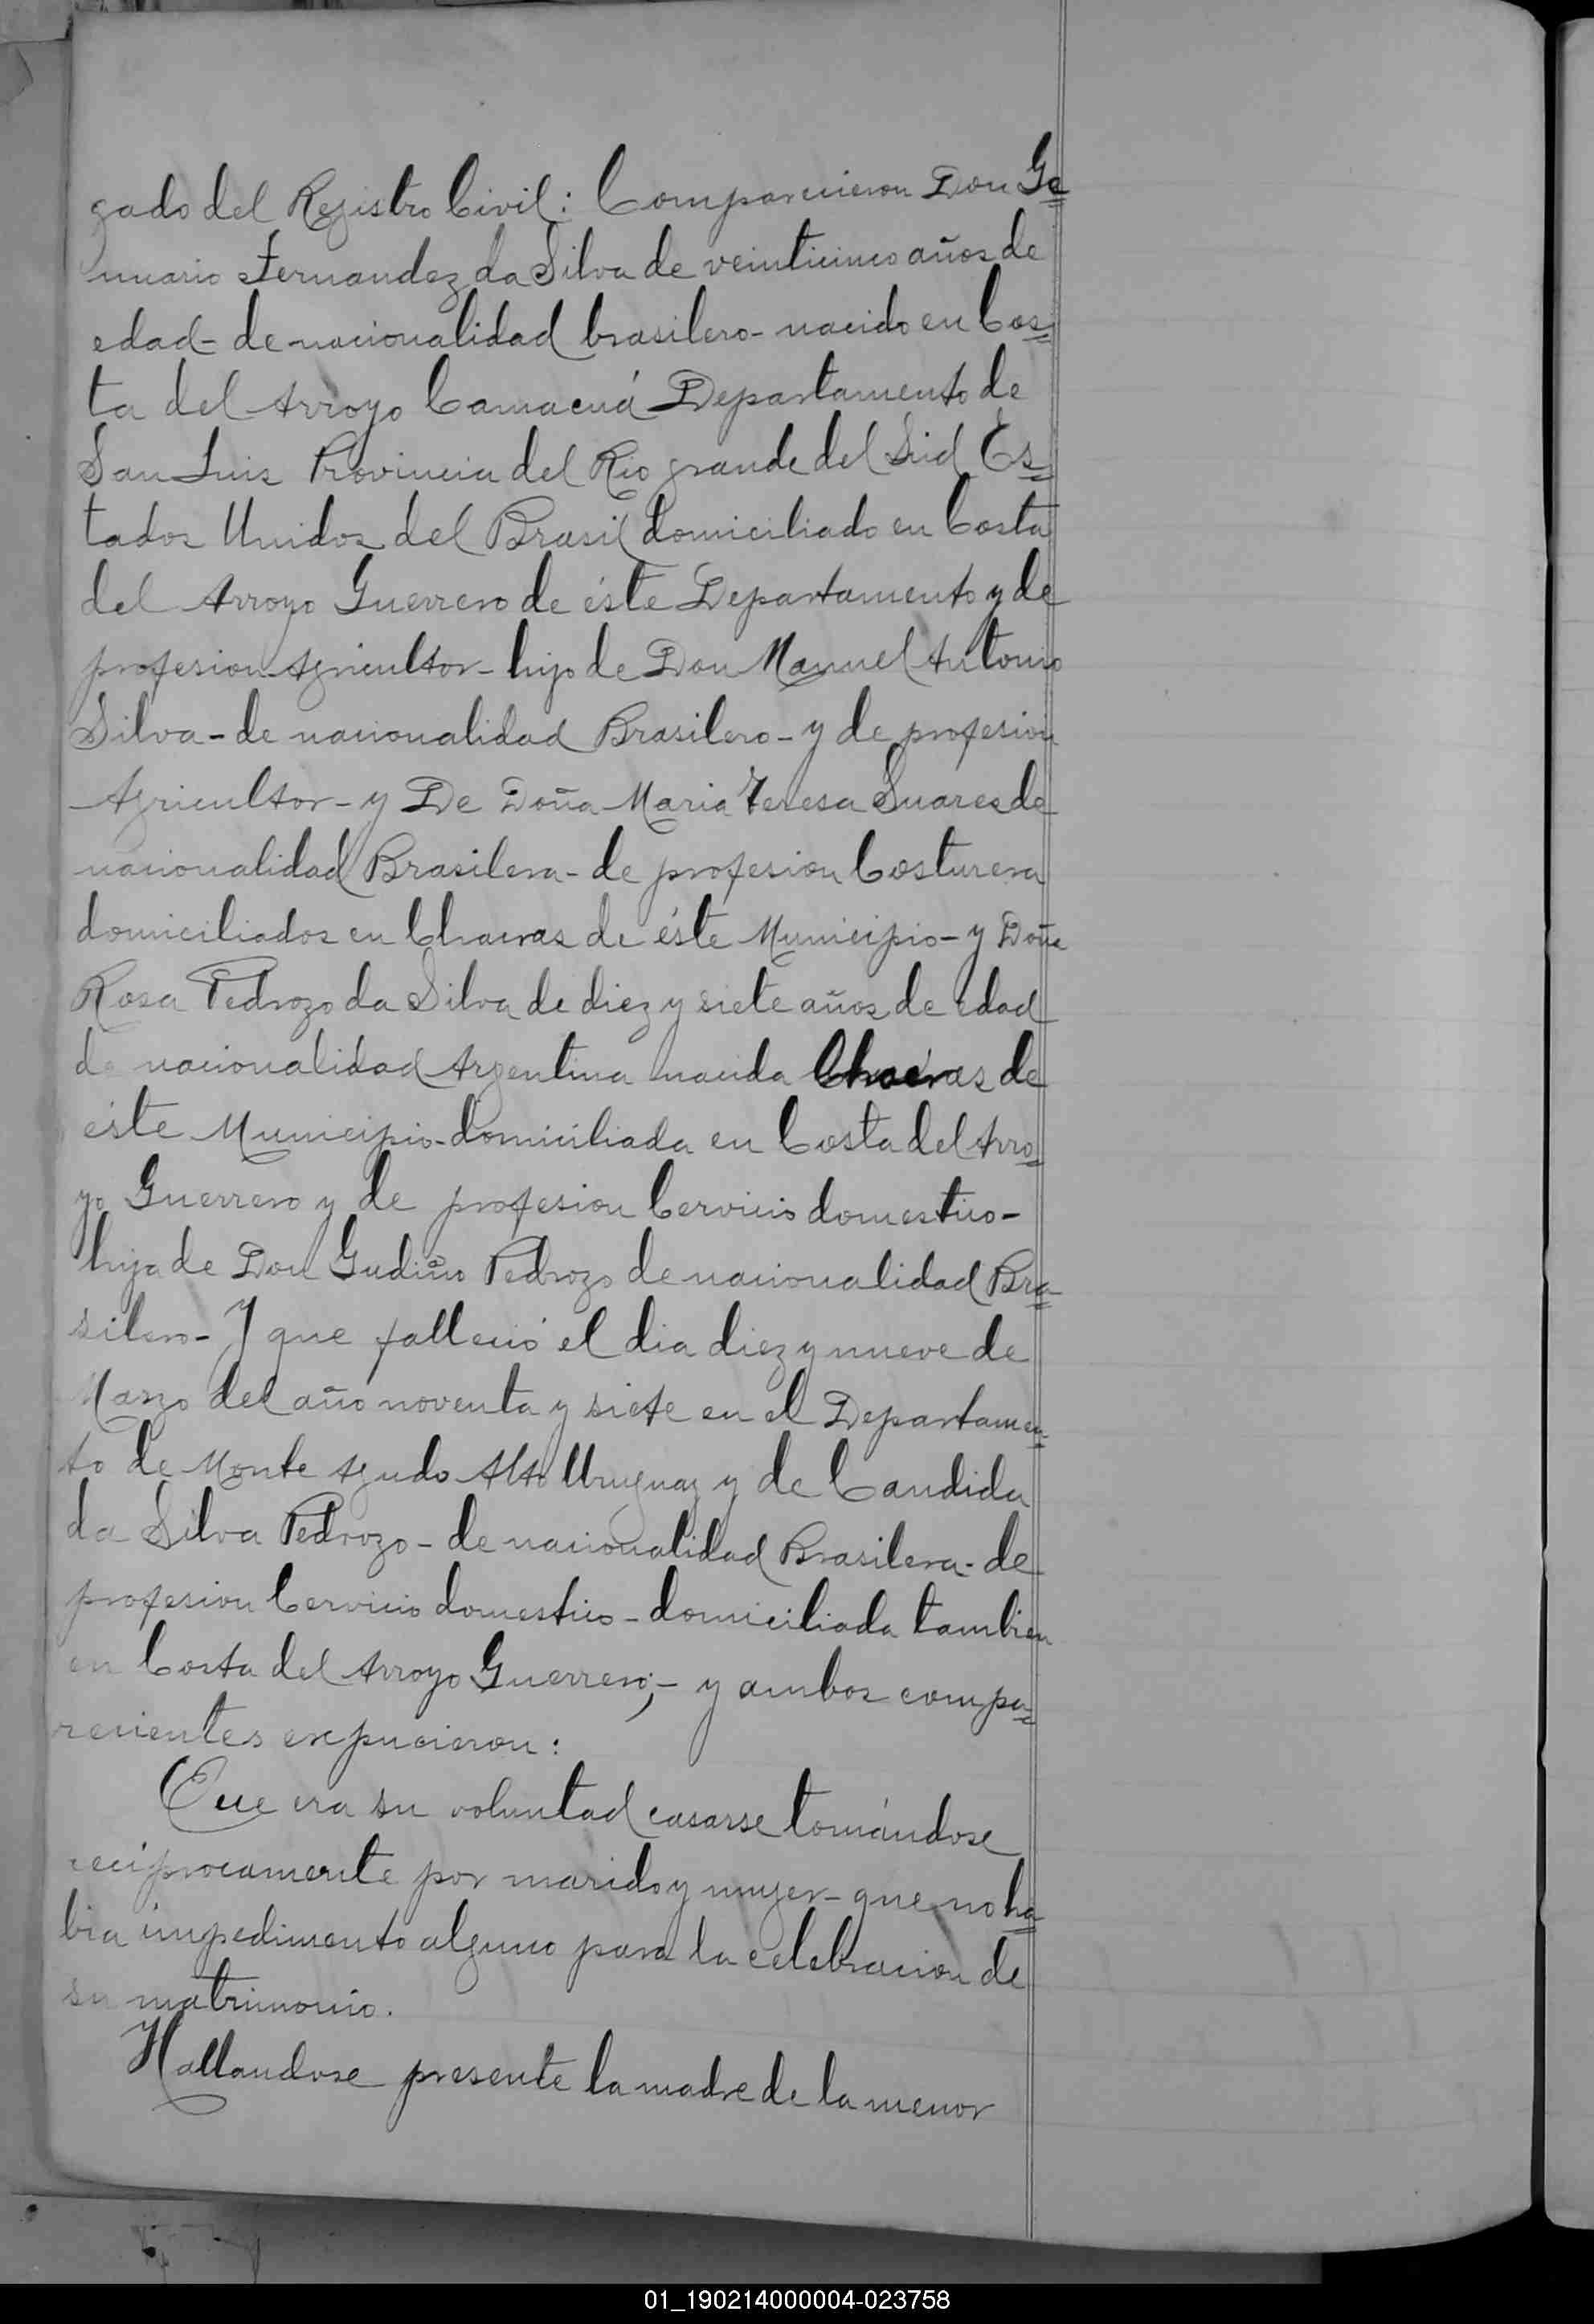 gado del Registro Civil: Comparecieron Don Ge=
nuario Fernandez da Silva de veinticinco años de
edad- de nacionalidad brasilero- nacido en Cos=
ta del Arroyo Camacuá Departamento de
San Luis Provincia del Rio grande del Sud Es=
tados Unidos del Brasil domiciliado en Costa
del Arroyo Guerrero de éste Departamento y de
profesion Agricultor- hijo de Don Manuel Antonio
Silva- de nacionalidad Brasilero- y de profesion
Agricultor- y De Doña Maria Teresa Suares de
nacionalidad Brasilera- de profesion Costurera
domiciliados en Chacras de éste Municipio- y Doña
Rosa Pedrozo da Silva de diez y siete años de edad
de nacionalidad Argentina nacida Chacras de
éste Municipio- domiciliada en Costa del Arro=
yo Guerrero y de profesion Cervicio domestico-
hija de Don Gudiño Pedrozo de nacionalidad Bra=
silero- Y que falleció el dia diez y nueve de
Marzo del año noventa y siete en el Departamen=
to de Monte Agudo Alto Uruguay y de Candida
da Silva Pedrozo- de nacionalidad Brasilera- de
profesion Cervicio domestico- domiciliada tambien
en Costa del Arroyo Guerrero;- y ambos compa=
recientes expucieron:
Que era su voluntad casarse tomándose
reciprocamente por marido y mujer- que no ha=
bia impedimento alguno para la celebracion de
su matrimonio.
Hallandose presente la madre de la menor
01_190214000004-023758